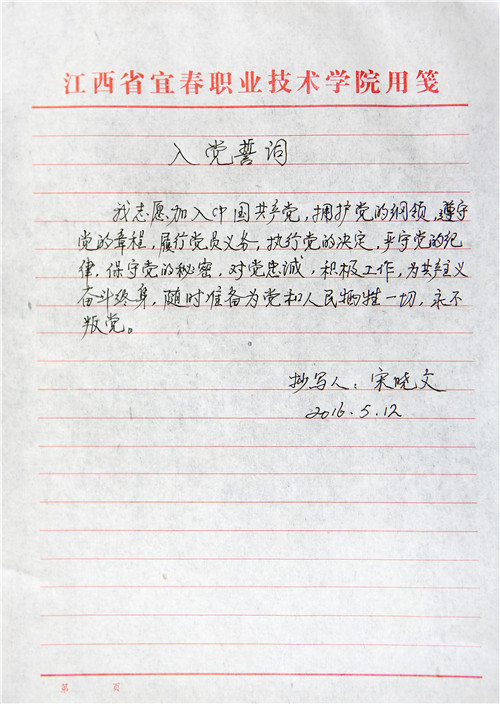 江西省宜春职业技术学院用笺
入党誓词
我志愿加入中国共产党，拥护党的纲领，遵守
党的章程，履行党员义务，执行党的决定，严守党的纪
律，保守党的秘密，对党忠诚，积极工作，为共产主义
奋斗终身，随时准备为党和人民牺牲一切，永不
叛党。
抄写人：宋晓文
2016.5.12
第 页